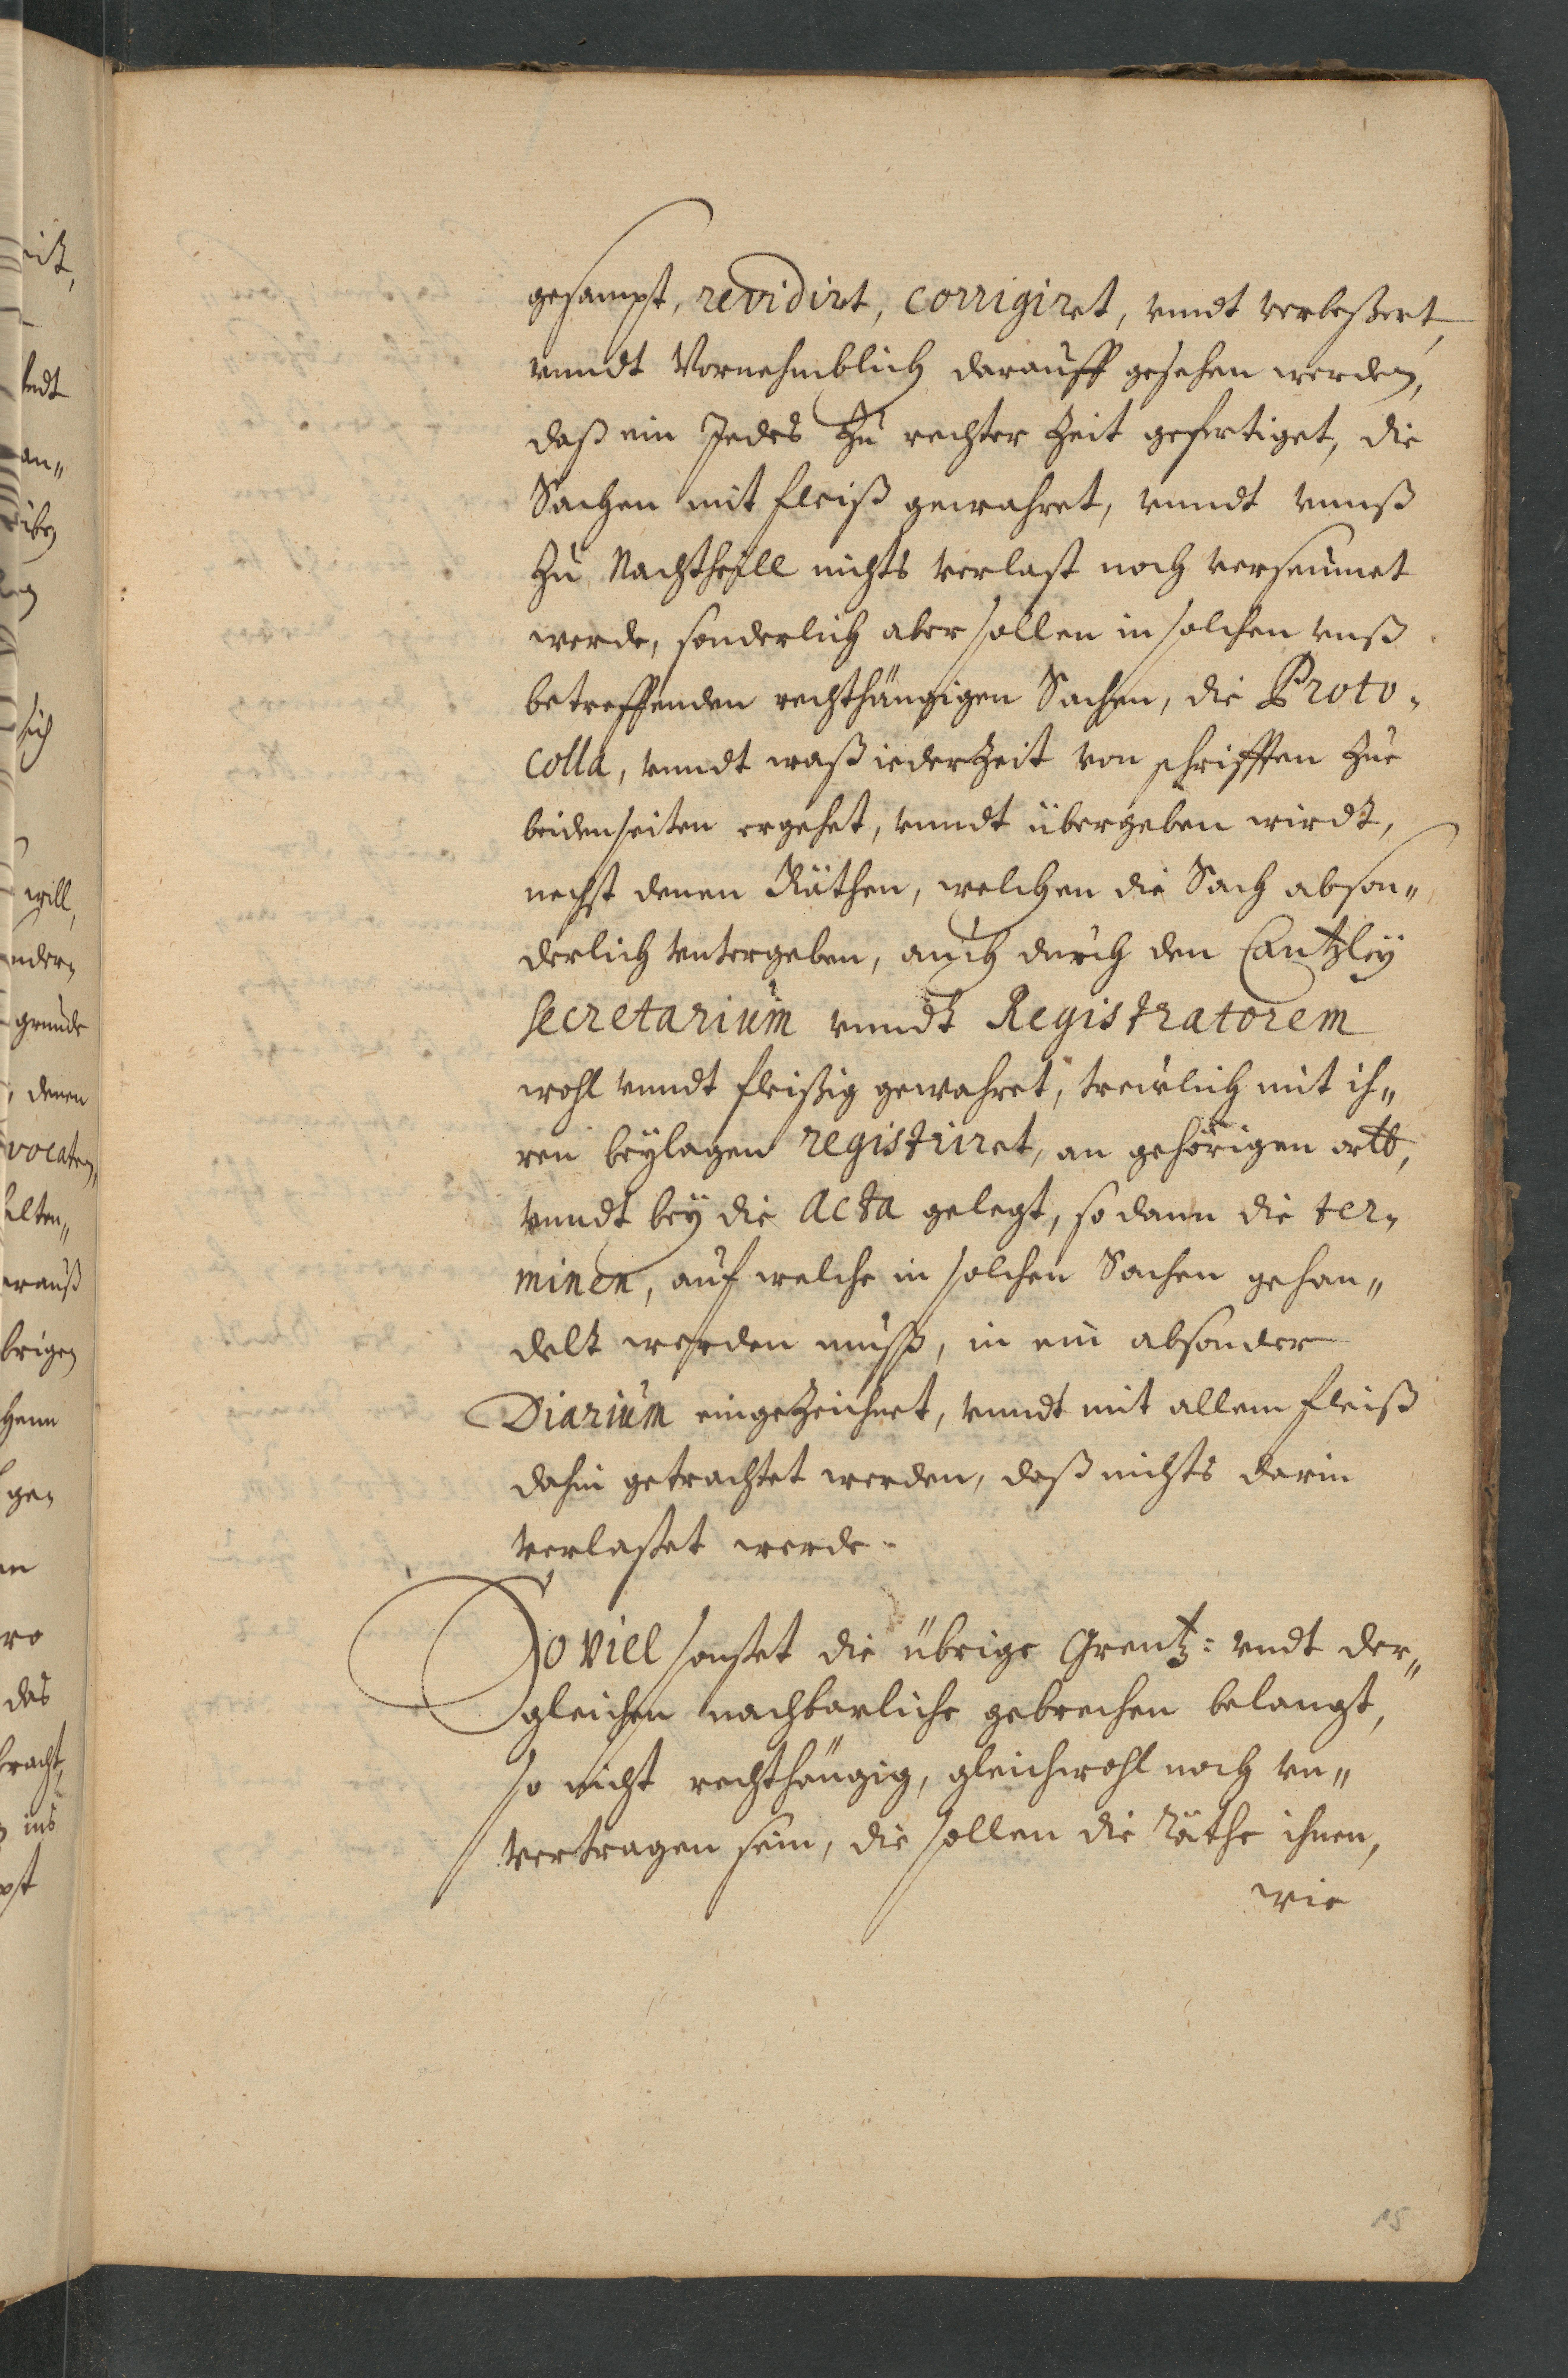 gesampt, revidirt, corrigiret, vnndt verbeßert,
vnndt Vornehmblich darauff gesehen werden,
daß ein Jedes Zu rechter Zeit gefertiget, die
Sachen mit fleiß gewahret, vnndt vnnß
Zu Nachtheill nichts verlast noch verseumet
werde, sonderlich aber sollen in solchen vnß
betreffenden rechthängigen Sachen, die Proto-
colla, vnndt waß iederZeit von schrifften Zue
beidenseiten ergehet, vnndt übergeben wirdt,
nechst denen Räthen, welchen die Sach abson„
derlich vntergeben, auch durch den Cantzley
Secretarium vnndt Registratorem
wohl vnndt fleißig gewahret, trewlich mit ih„
ren beylagen registriret, an gehörigen ortt,
vnndt bey die Acta gelegt, so dann die ter„
minen, auf welche in solchen Sachen gehan„
delt werden muß, in ein absonder
Diarium eingeZeichnet, vnndt mit allem fleiß
dahin getrachtet werden, daß nichts darin
verlaßet werde.
So viel sonstet die übrige Grentz: vndt der„
gleichen nachbarliche gebrechen belangt,
so nicht rechthängig, gleichwohl noch vn„
vertragen sein, die sollen die Räthe ihnen,
wie
15